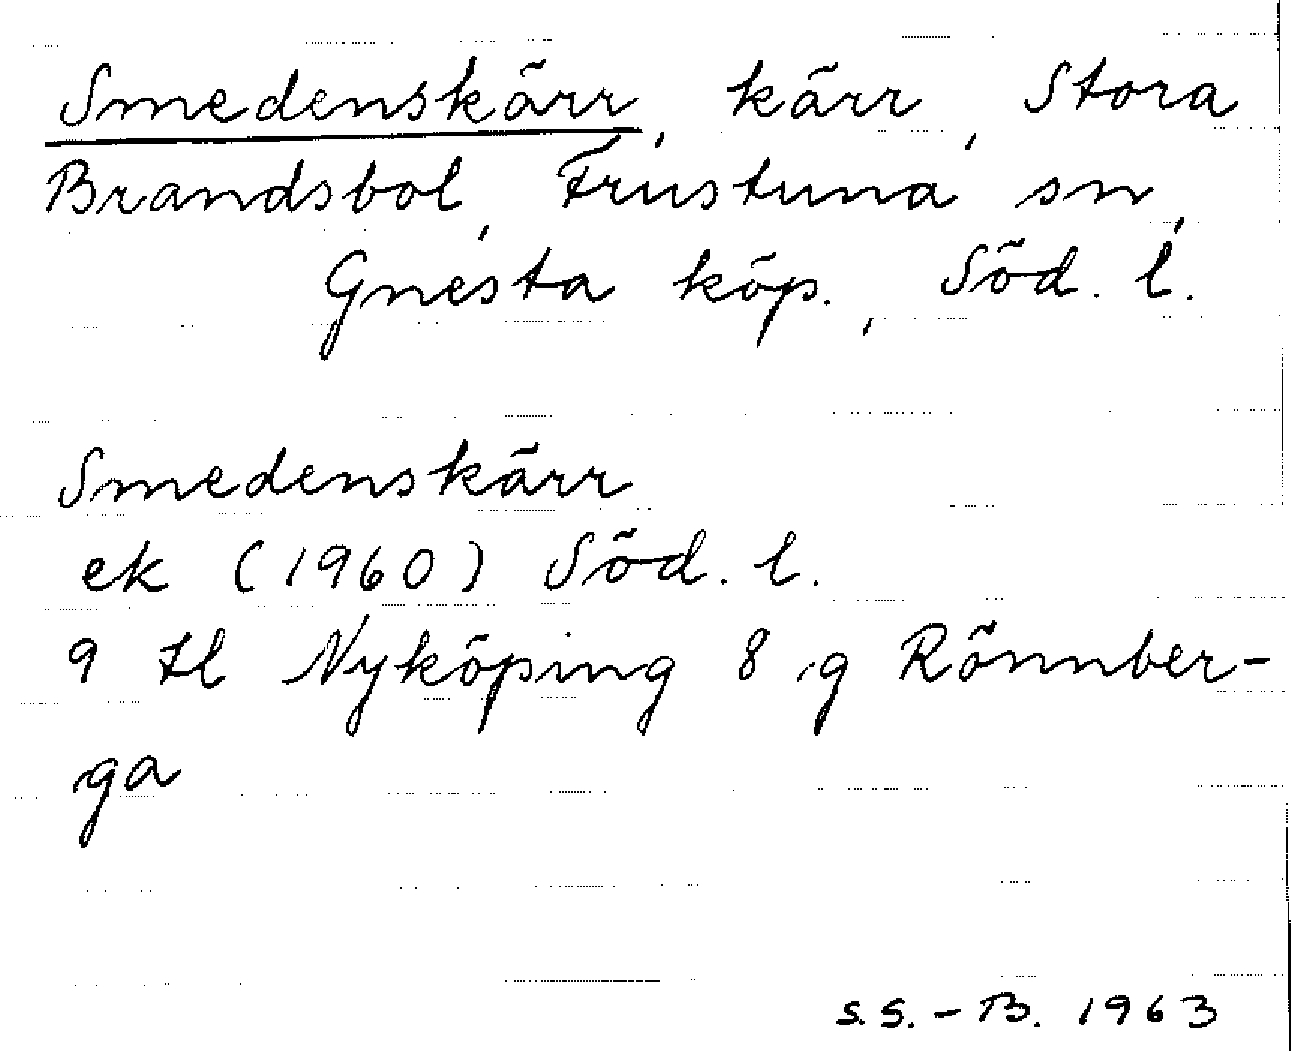 Smedenskärr, kärr, Stora
Brandsbol, Frustuna sn,
Gnesta köp., Söd. l.
Smedenskärr
ek (1960) Söd. l.
9 H Nyköping 8 g Rönnber-
ga
S.S. - B. 1963